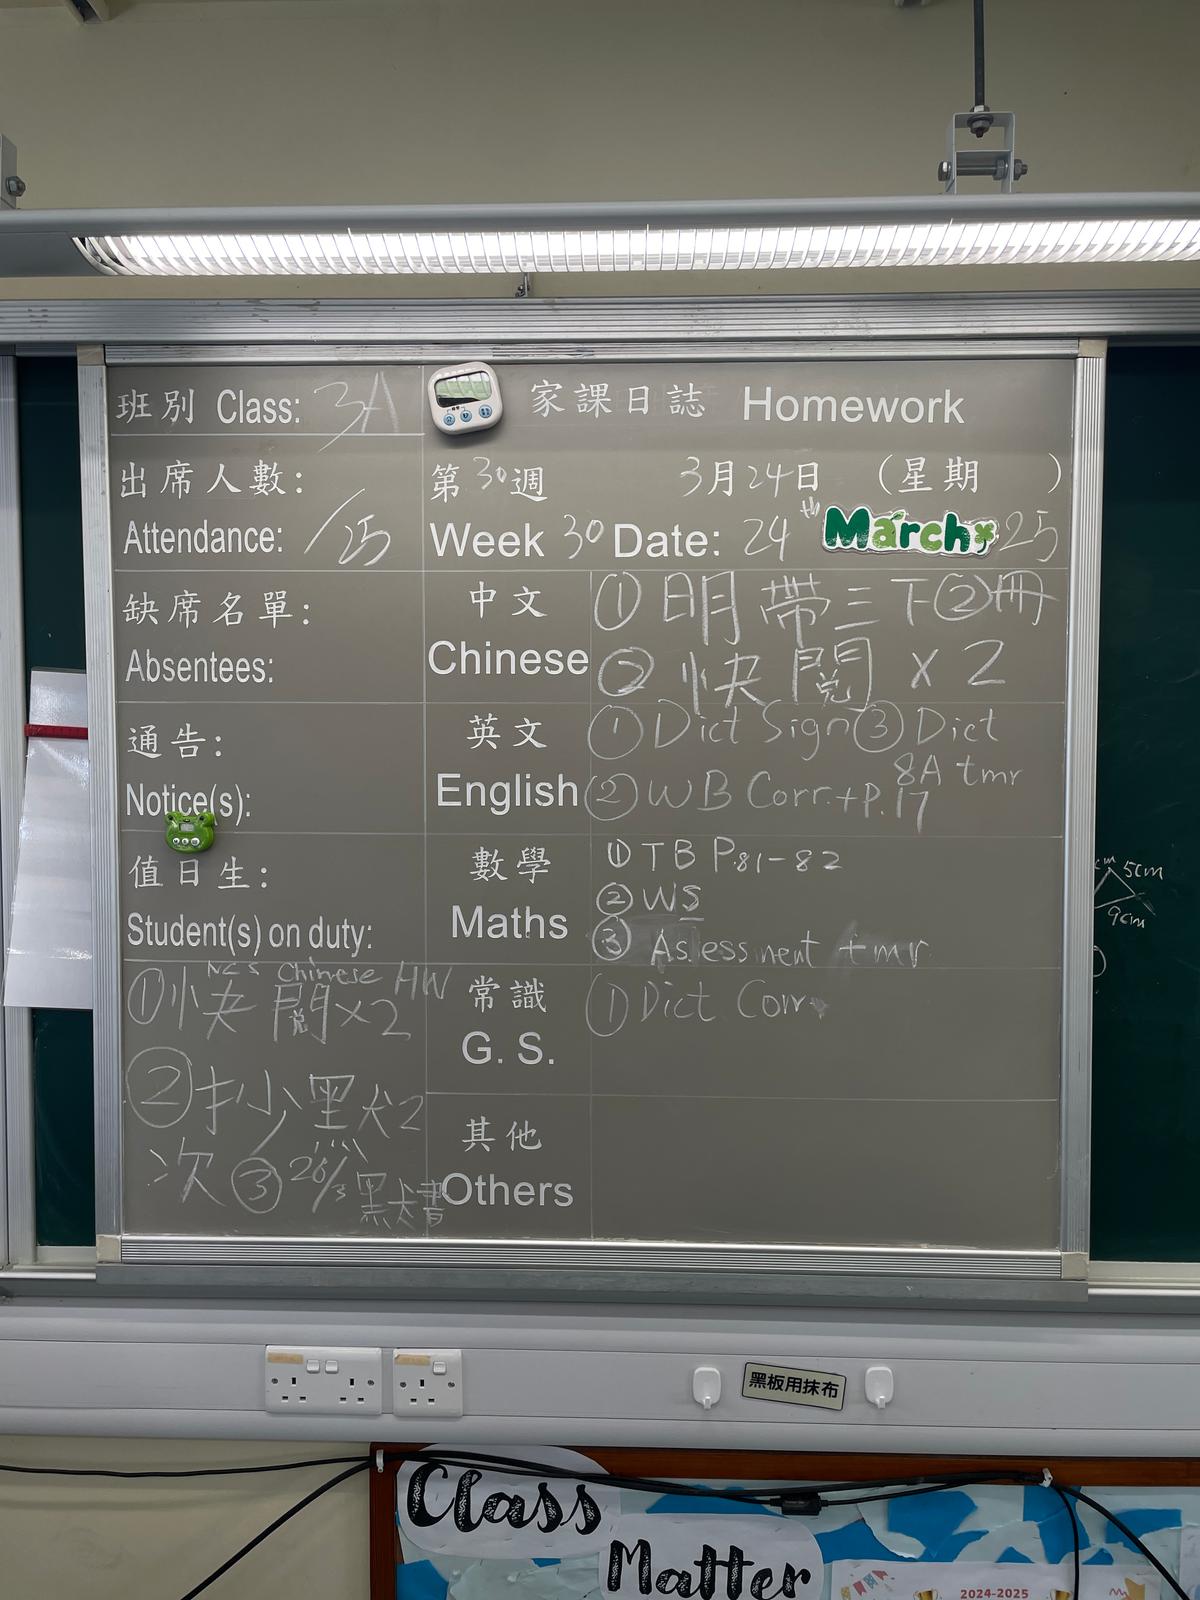 班別 Class: 3A
家課日誌 Homework
出席人數:
Attendance: /25
第30週 3月24日 (星期 )
Week 30 Date: 24th March 25
缺席名單:
Absentees:
中文
Chinese
① 明帶三下②冊
② 快閱 x 2
通告:
Notice(s):
英文
English
① Dict Sign ③ Dict
8A tmr
② WB Corr. + p.17
值日生:
Student(s) on duty:
數學
Maths
① TB P.81-82
② WS
③ Assessment tmr
NCS Chinese HW
① 快閱x2
② 抄黑犬2
次 ③ 26/3 黑犬書
常識
G. S.
① Dict Corr.
其他
Others
5cm
9cm
黑板用抹布
Class
Matter
2024-2025